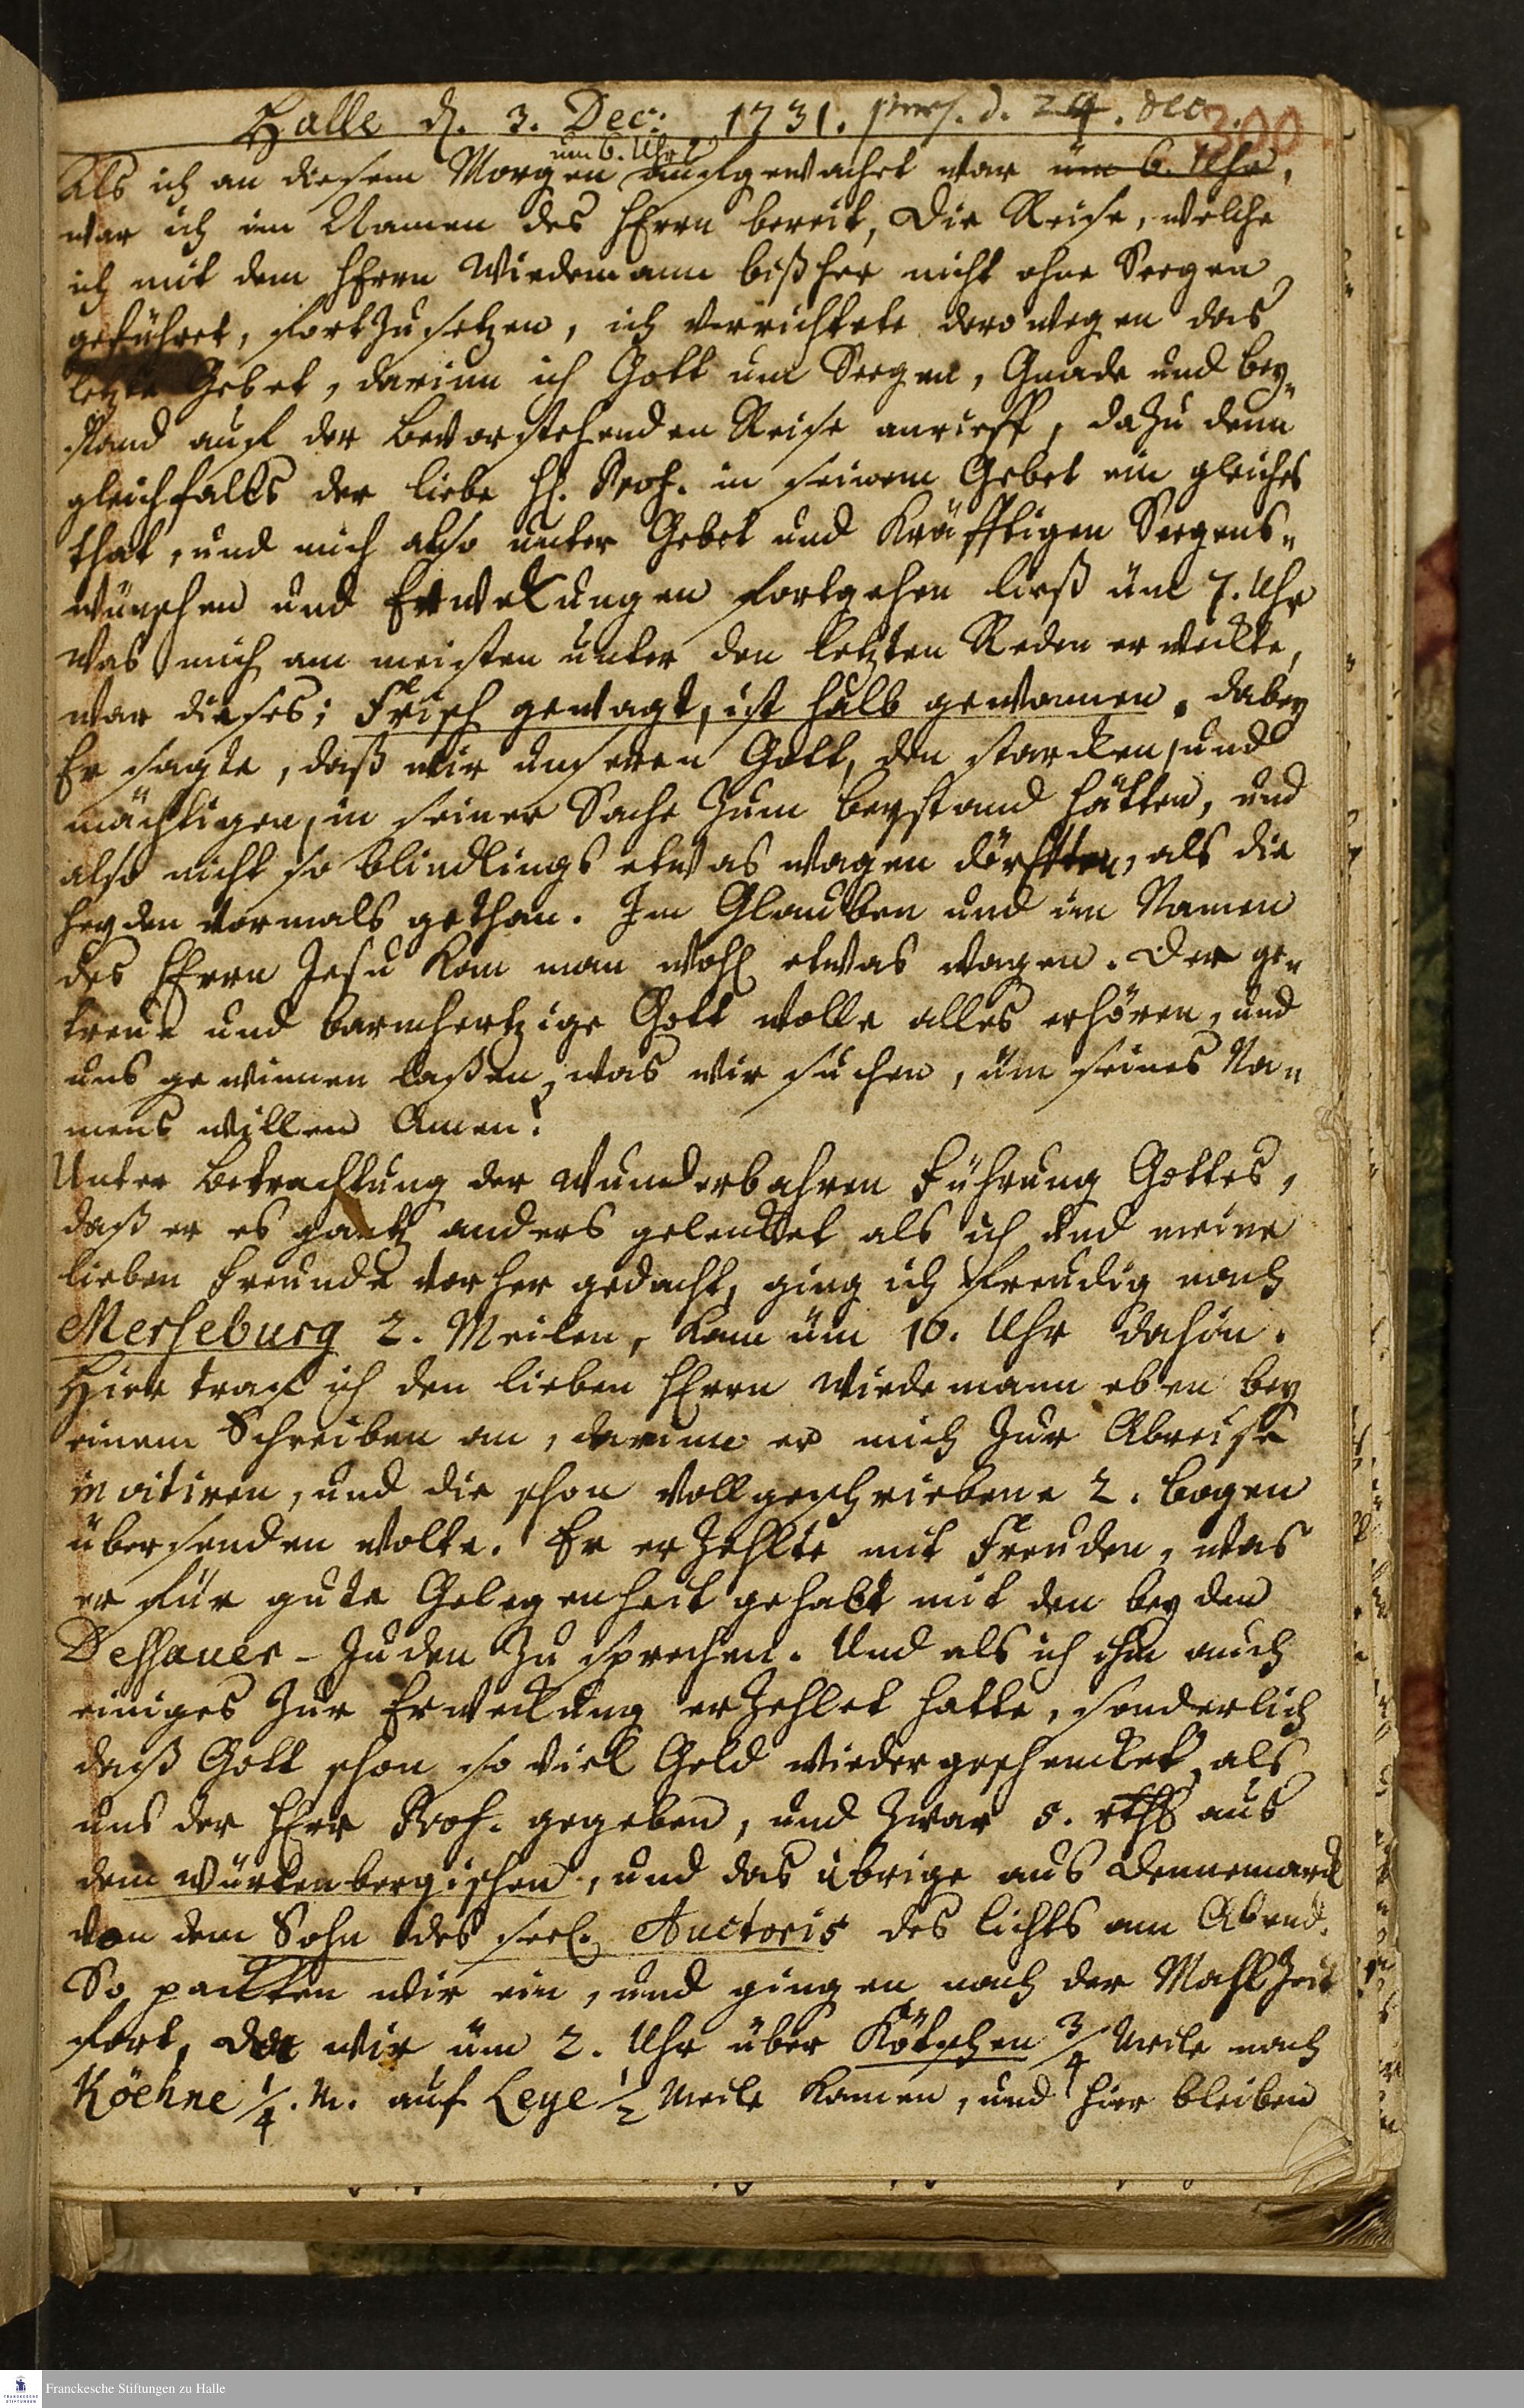 Halle d. 3. Dec: 1731. praes. d. 24. Dec. 300
um 6. Uhr
Als ich an diesem Morgen aufgewachet war um 6. Uhr,
war ich im Namen des HErrn bereit, die Reise, welche
ich mit dem HErrn Wiedemann bißher nicht ohne Seegen
geführet, fortzusetzen, ich verrichtete derowegen das
letzte Gebet, darinn ich Gott um Seegen, Gnade und bey-
stand auf der bevorstehenden Reise anrieff, dazu denn
gleichfalls der liebe H. Prof. in seinem Gebet ein gleiches
that, und mich also unter Gebet und Kräfftigen Seegens-
wünschen und Erwekungen fortgehen ließ üm 7. Uhr
Was mich am meisten unter den letzten Reden erwekte,
war dieses; Frisch gewagt, ist halb gewonnen. dabey
Er sagte, daß wir unseren Gott, den starcken, und
mächtigen, in seiner Sache zum beystand hätten, und
also nicht so blindlings etwas wagen dörfften, als die
Heyden vormals gethan. Im Glauben und im Namen
des HErrn Jesu kan man wohl etwas wagen. Der ge-
treue und barmhertzige Gott wolle alles erhören, und
uns gewinnen laßen, was wir suchen, üm seines Na-
mens willen Amen!
Unter betrachtung der wunderbahren Führung Gottes,
daß er es gantz anders gelencket als ich und meine
lieben Freunde vorher gedacht, ging ich freudig nach
Merseburg 2. Meilen, kam üm 10. Uhr dahin.
Hier traf ich den lieben HErrn Wiedemann eben bey
einem Schreiben an, darinn er mich zur Abreise
invitiren, und die schon vollgeschriebene 2. bogen
übersenden wolte. Er erzehlte mit Freuden, was
er für gute Gelegenheit gehabt mit den beyden
Dessauer-Juden zu sprechen. Und als ich ihm auch
einiges zur Erweckung erzehlet hatte, sonderlich
daß Gott schon so viel Geld wiedergeschencket, als
uns der HErr Prof. gegeben, und zwar 5. rthl aus
dem würtenbergischen, und das übrige aus Dennemarck
von dem Sohn des seel. Auctoris des lichts am Abend.
So packten wir ein, und gingen nach der Mahlzeit
fort, da wir üm 2. Uhr über Kötschen 3/4 Meile nach
Köehne 1/4. M. auf Leye 1/2 Meile kamen, und hier bleiben
Franckesche Stiftungen zu Halle